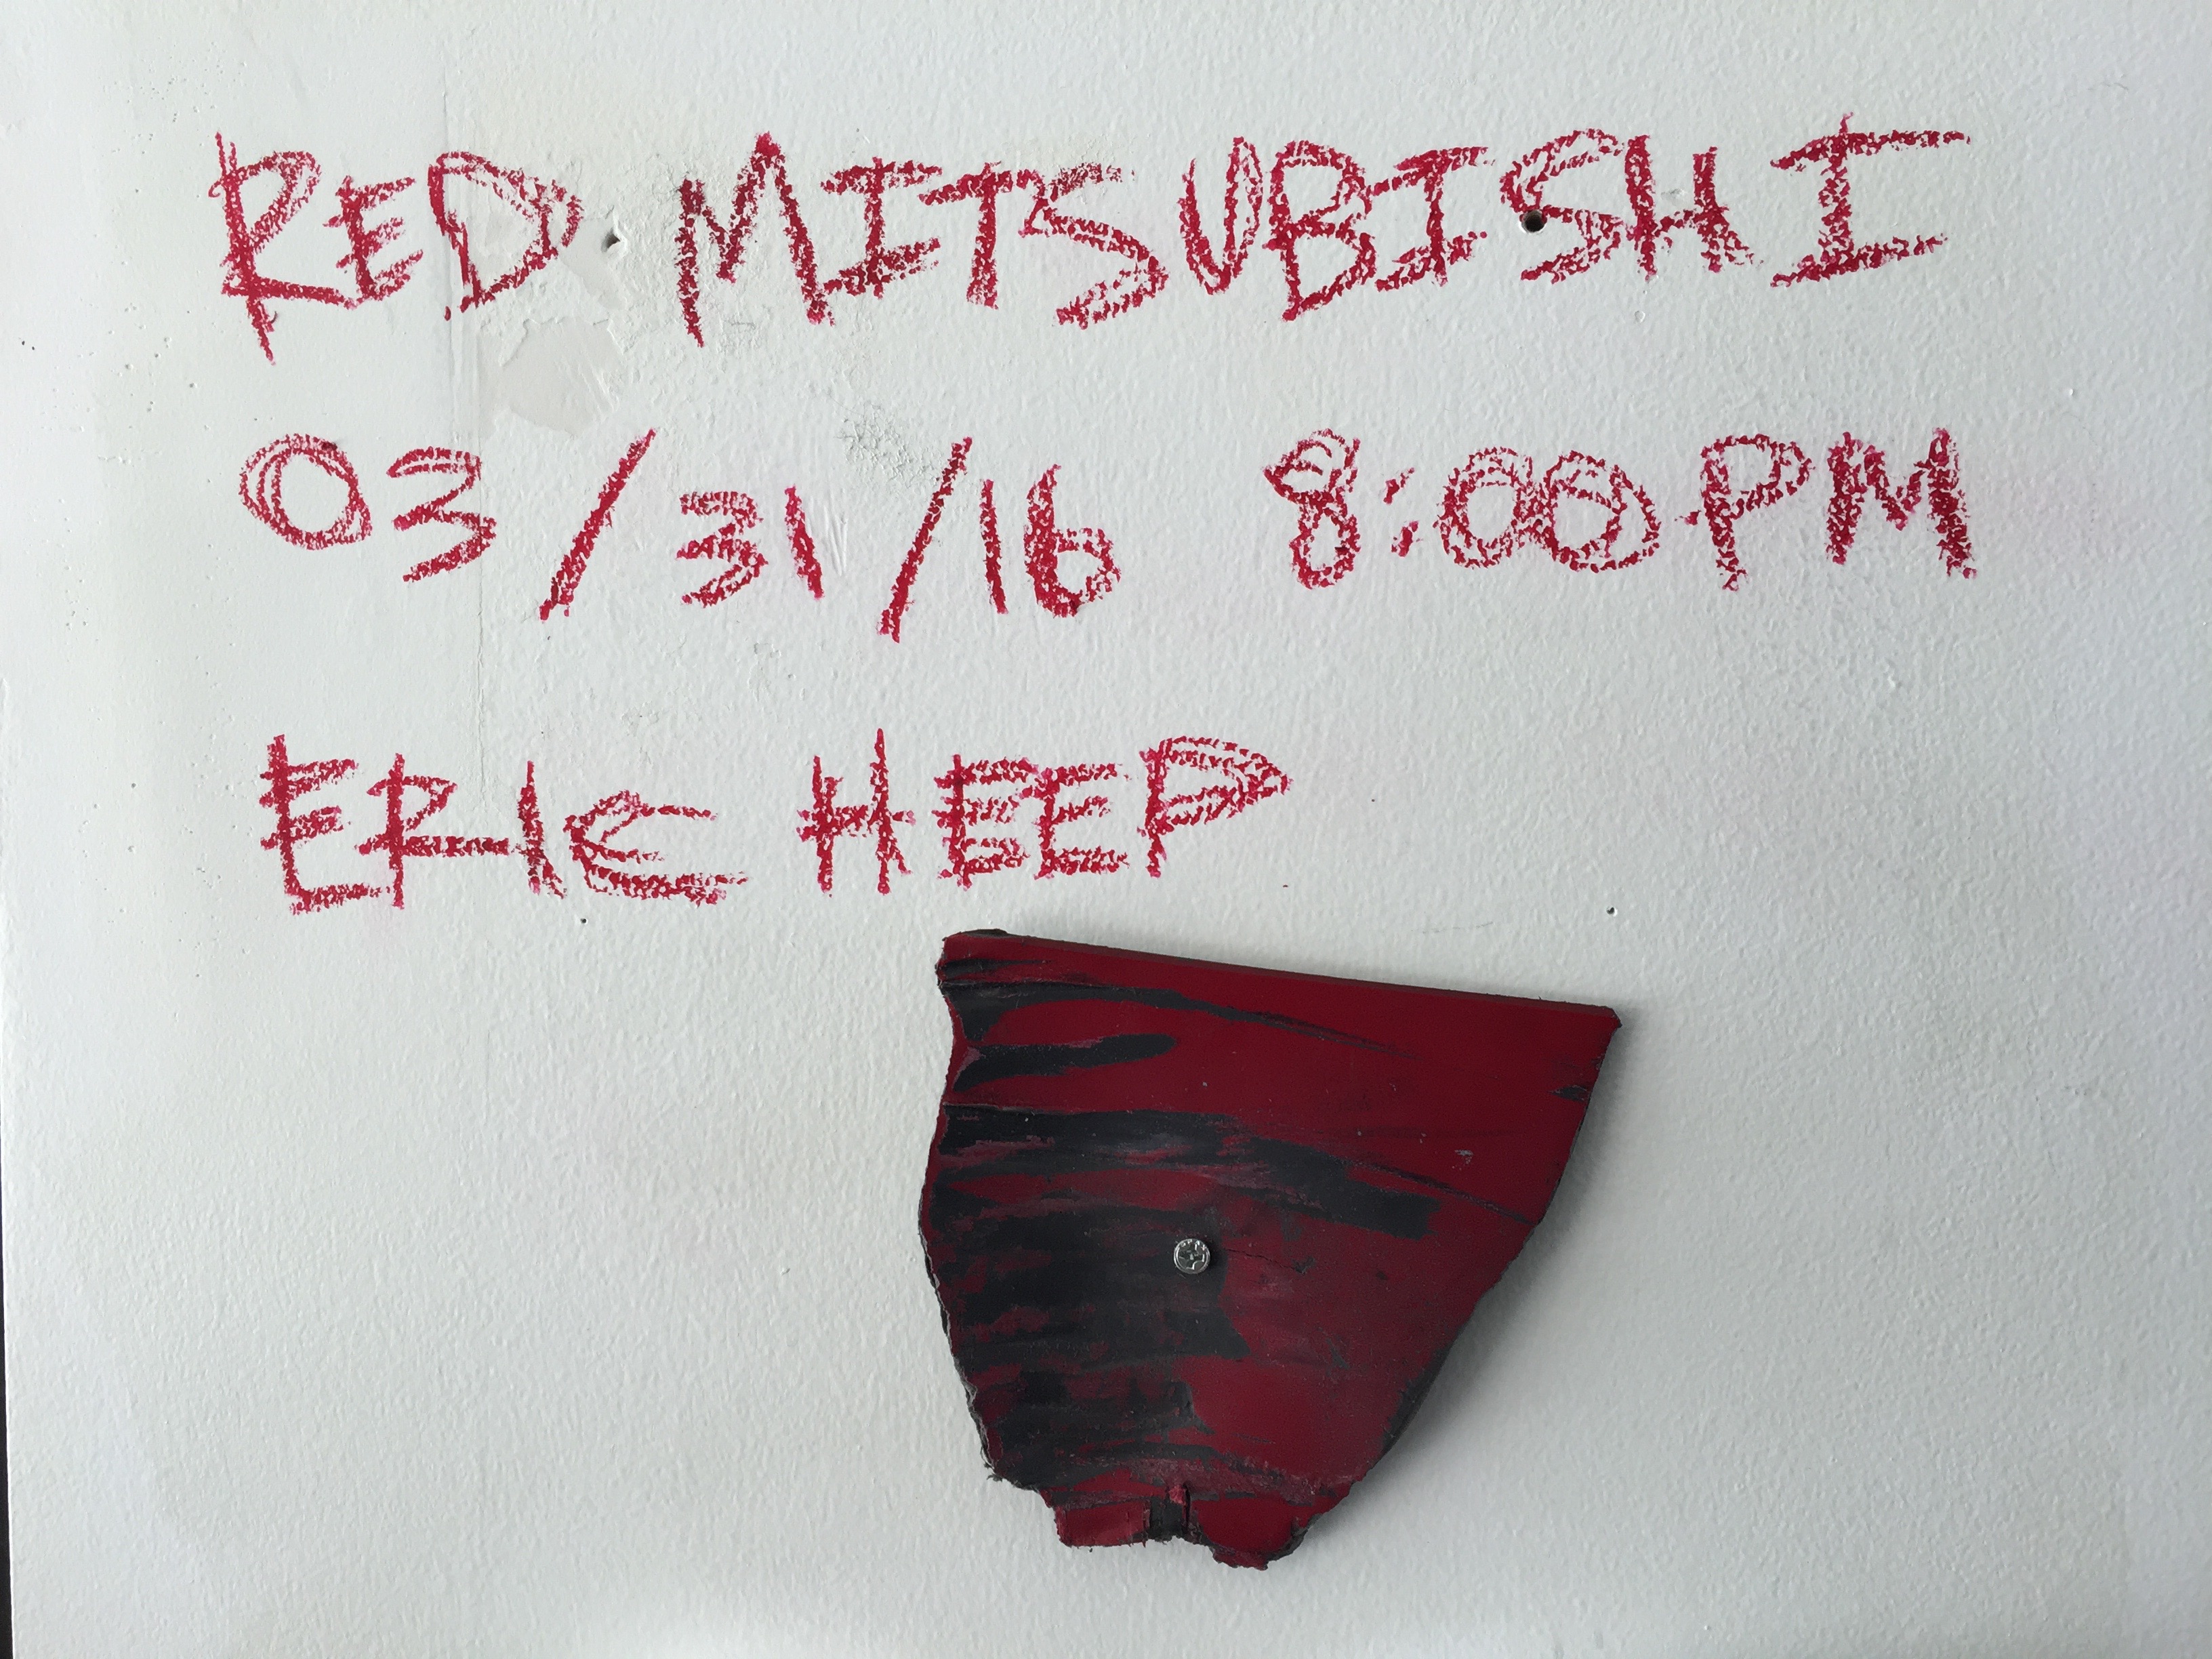 RED MITSUBISHI
03/31/16 8:00PM
ERIC HEEP